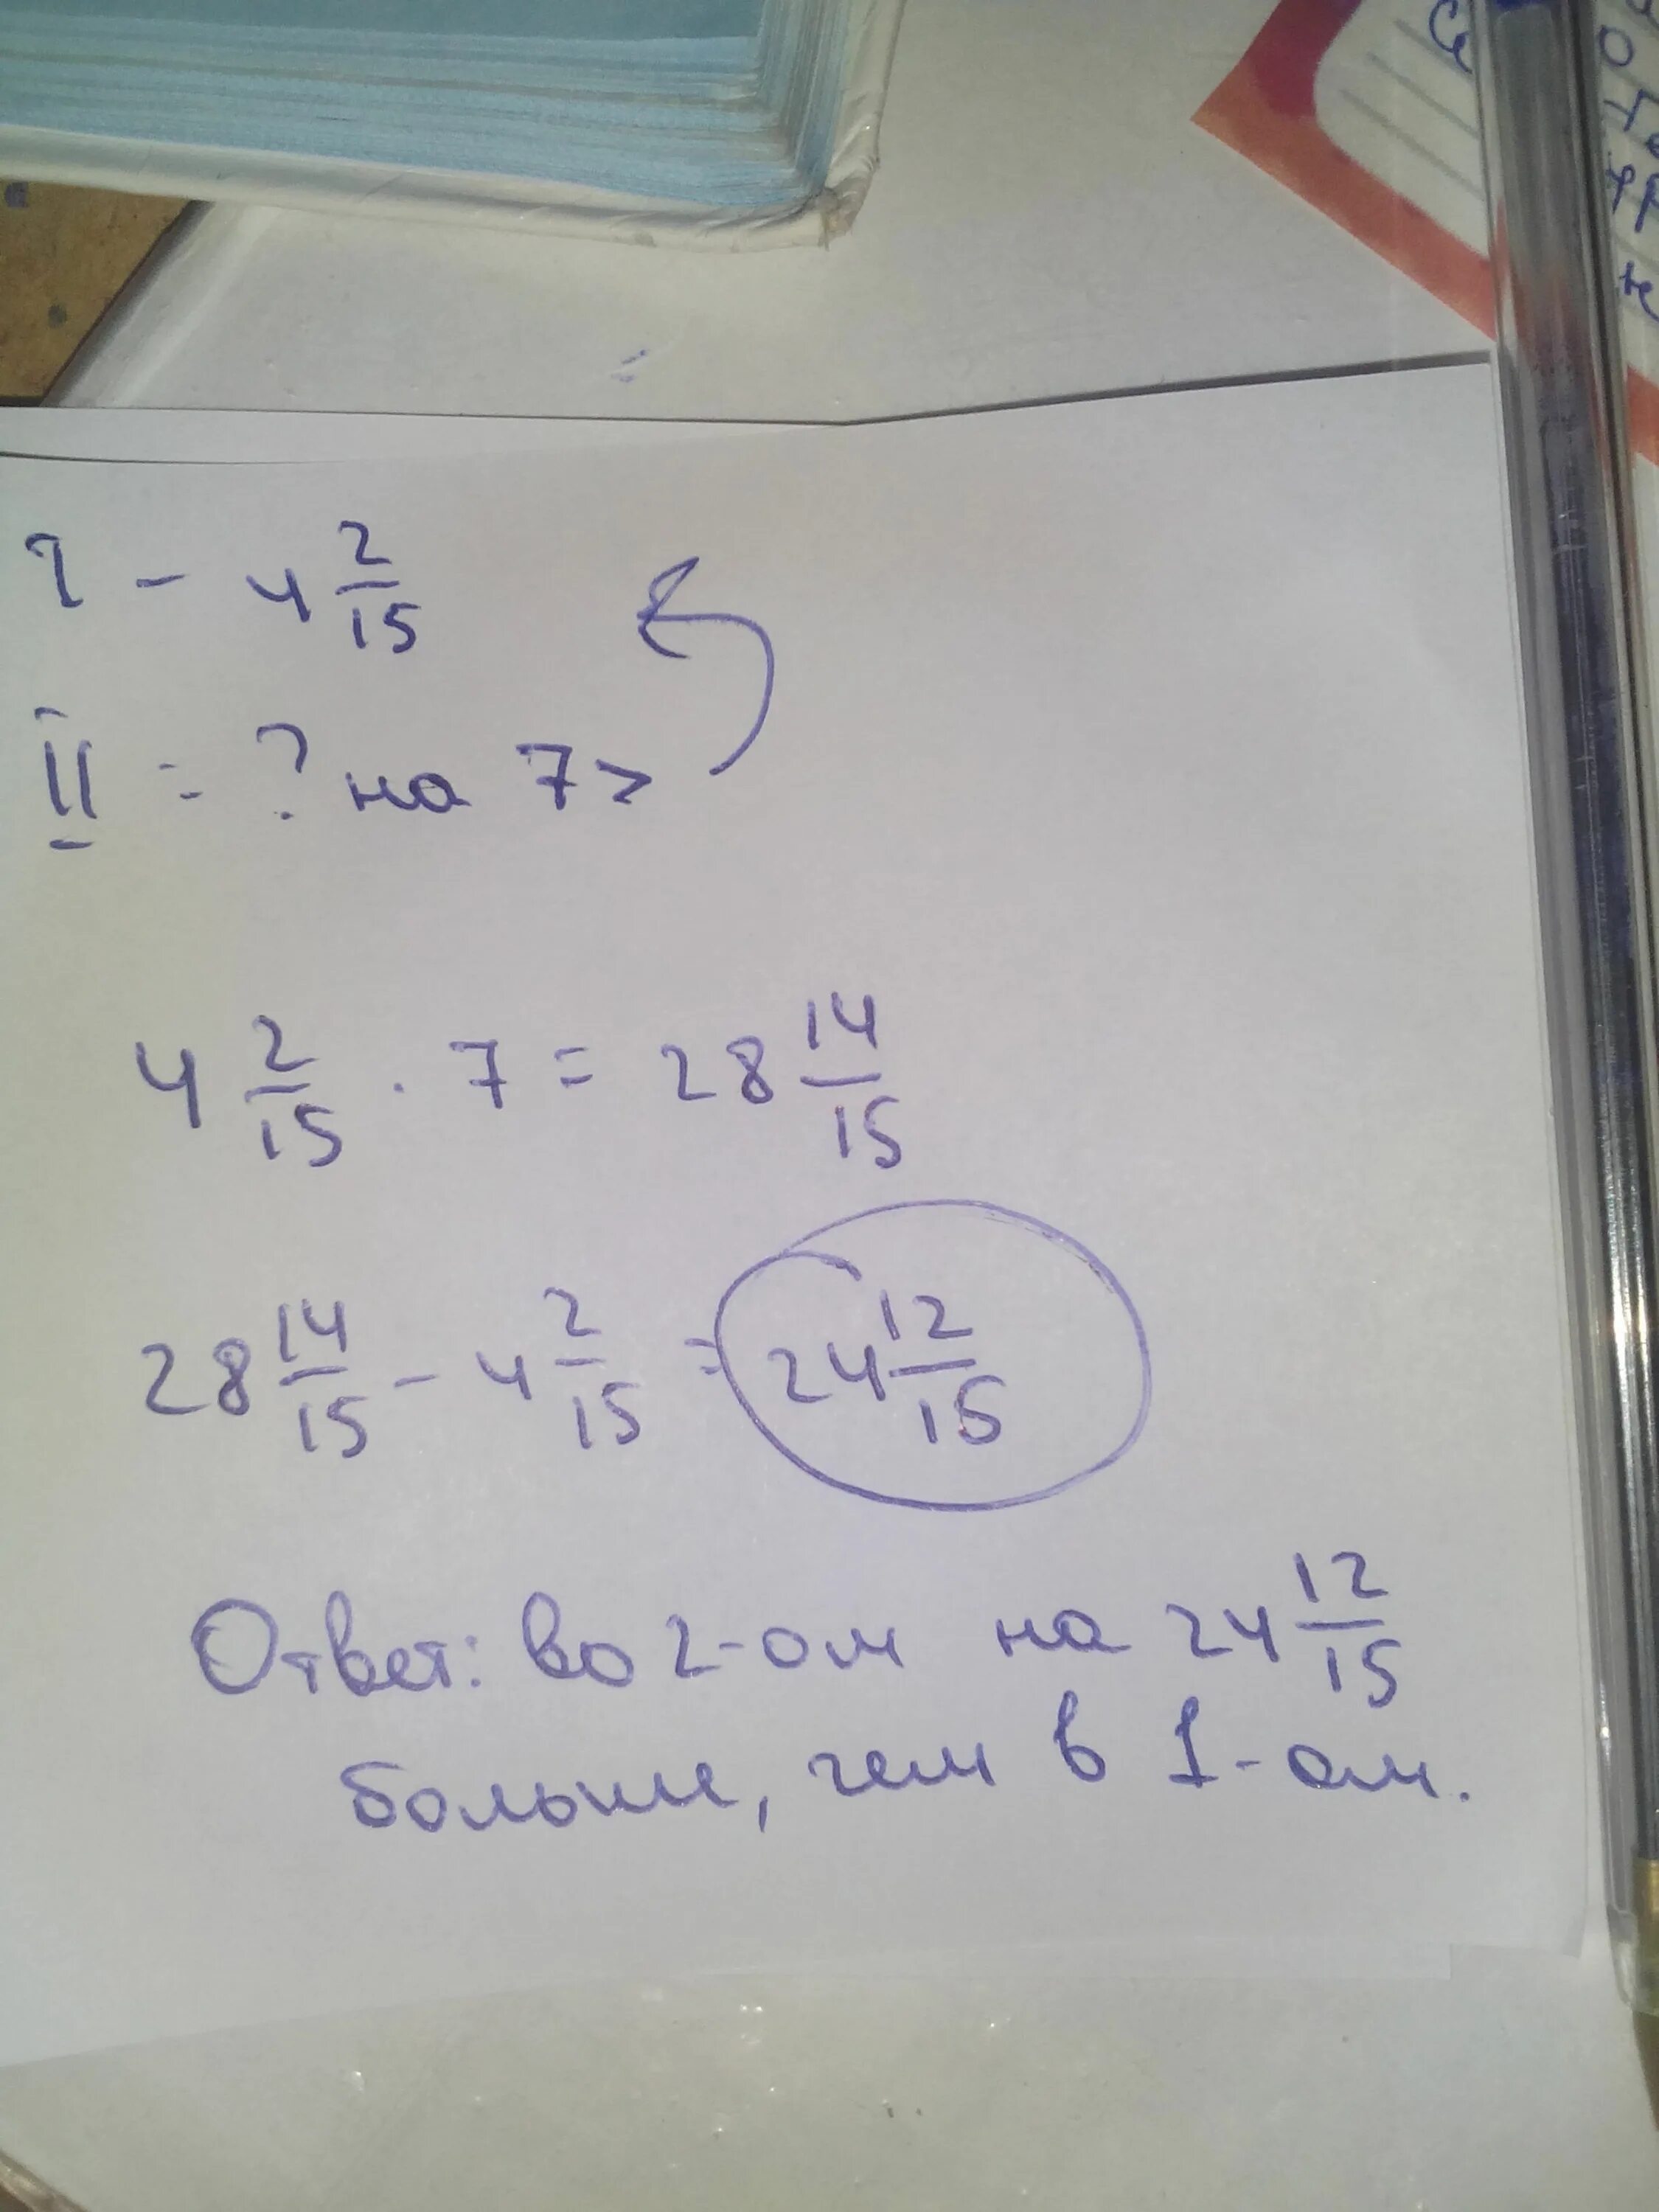 I - 4 2/15
II = ? на 7 >
4 2/15 · 7 = 28 14/15
28 14/15 - 4 2/15 = 24 12/15
Ответ: во 2-ом на 24 12/15
больше, чем в 1-ом.